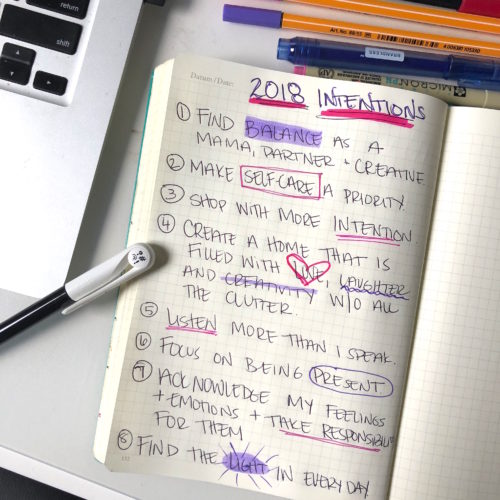 Datum/Date:
2018 INTENTIONS
① FIND BALANCE AS A
MAMA, PARTNER + CREATIVE.
② MAKE SELF-CARE A PRIORITY.
③ SHOP WITH MORE INTENTION.
④ CREATE A HOME THAT IS
FILLED WITH LOVE, LAUGHTER
AND CREATIVITY W/O ALL
THE CLUTTER.
⑤ LISTEN MORE THAN I SPEAK.
⑥ FOCUS ON BEING PRESENT
⑦ ACKNOWLEDGE MY FEELINGS
+ EMOTIONS + TAKE RESPONSIBILITY
FOR THEM
⑧ FIND THE LIGHT IN EVERYDAY
return
shift
MICRON